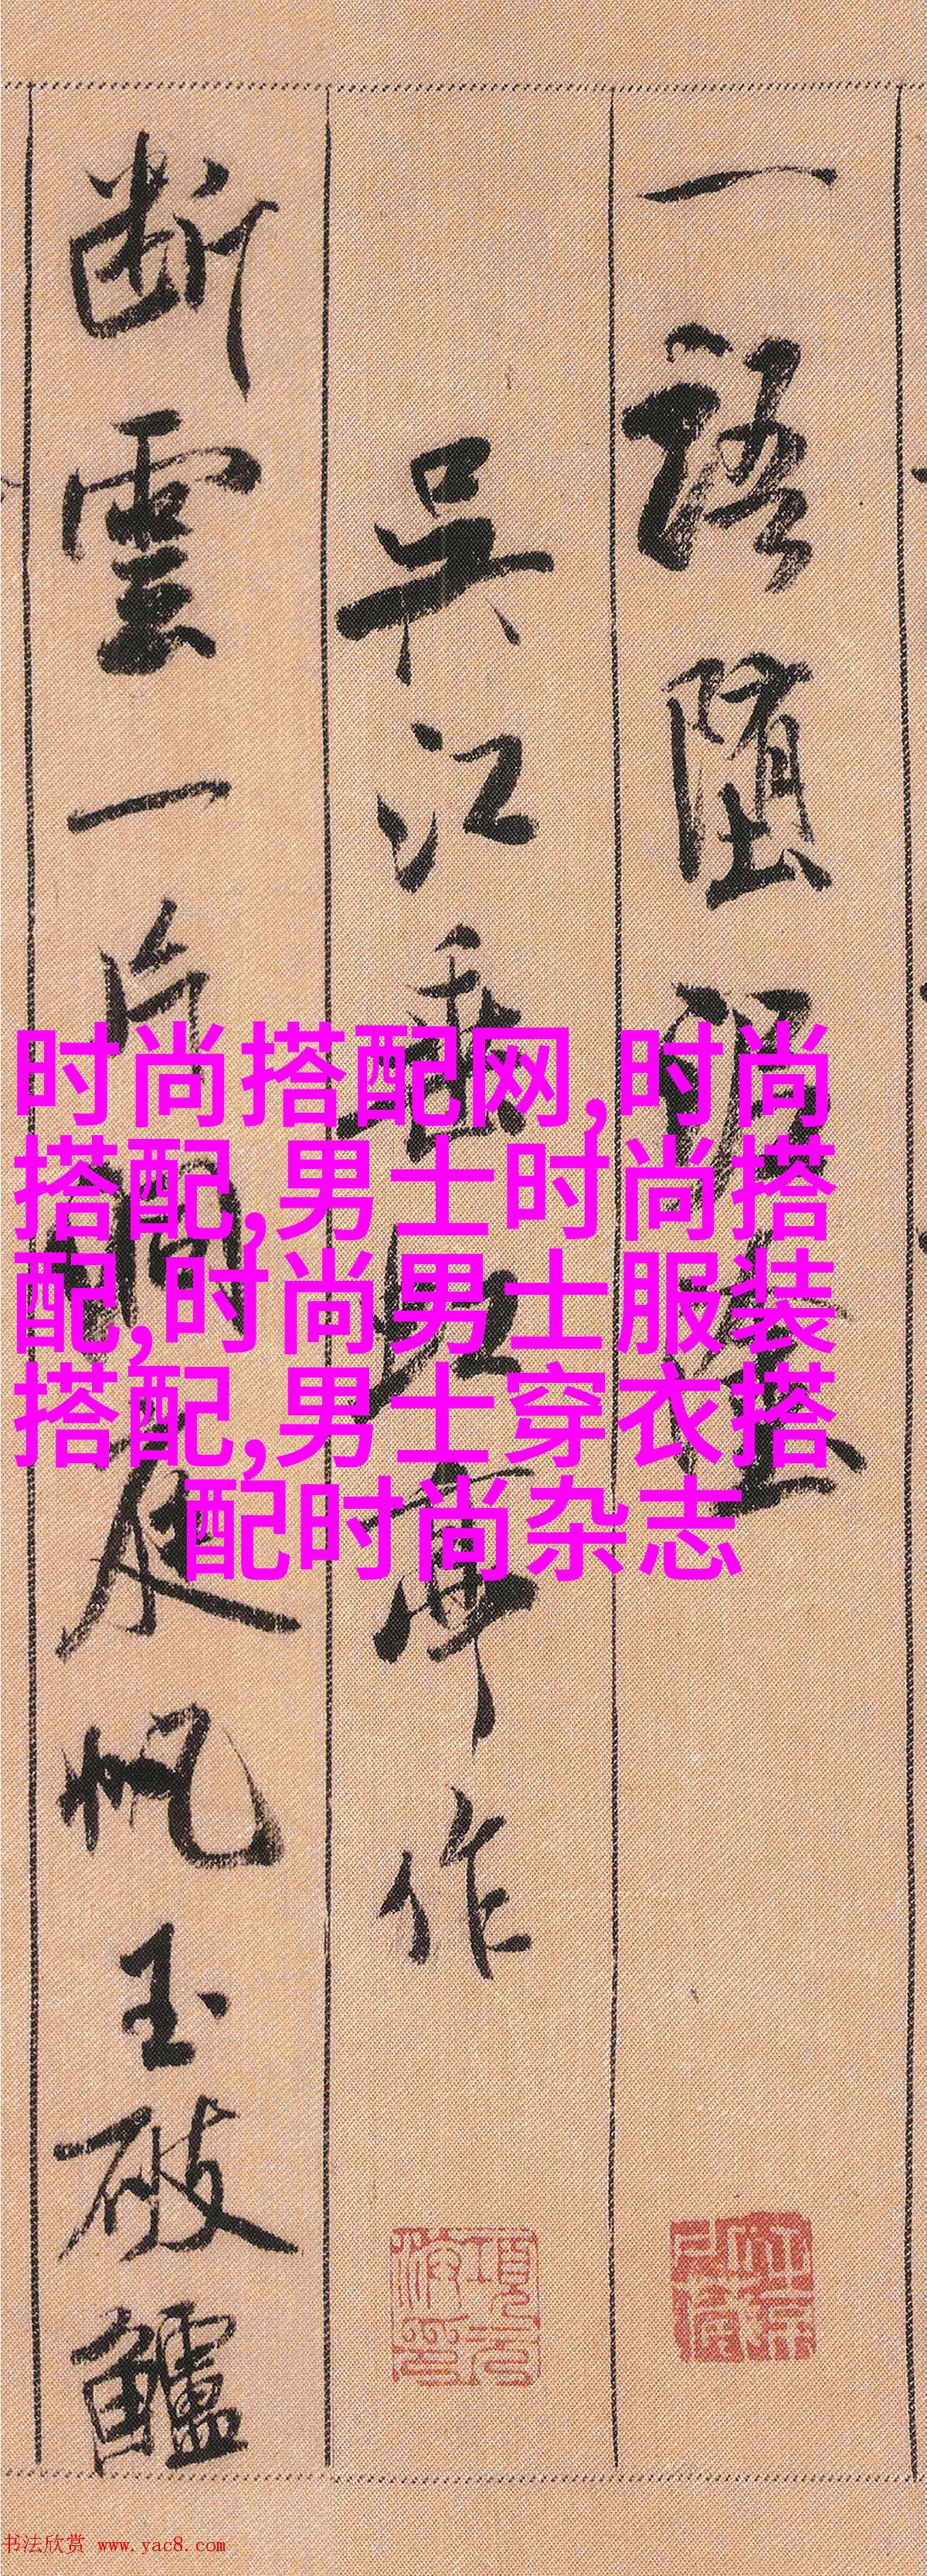 一語墮泥塗
吳江垂虹亭作
断雲一片洞庭帆玉破鱸
时尚搭配网,时尚
搭配,男士时尚搭
配,时尚男士服装
搭配,男士穿衣搭
配时尚杂志
书法欣赏 www.yac8.com